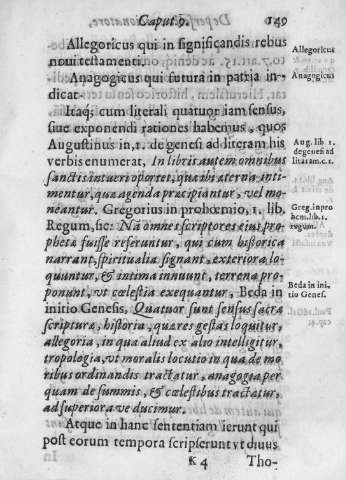 Caput. 9. 149
Allegoricus qui in significandis rebus
noui testamenti.
Anagogicus qui futura in patria in-
dicat.
Itaq; cum literali quatuor iam sensus,
siue exponendi rationes habemus, quos
Augustinus in, 1. de genesi ad literam his
verbis enumerat, In libris autem omnibus
sanctis intueri oportet, quæ ibi æterna inti-
mentur, quæ agenda præcipiantur, vel mo-
neantur. Gregorius in prohœmio, 1. lib.
Regum, sic: Nā omnes scriptores eius, pro-
pheta fuisse referuntur, qui cum historica
narrant, spiritualia signant, exteriora lo-
quuntur, & intima innuunt, terrena pro-
ponunt, vt cœlestia exequantur, Beda in
initio Genesis, Quatuor sunt sensus sacræ
scripturæ, historia, quæ res gestas loquitur,
allegoria, in qua aliud ex alio intelligitur,
tropologia, vt moralis locutio in qua de mo-
ribus ordinandis tractatur, anagogia per
quam de summis, & cœlestibus tractatur,
ad superiora ve ducimur.
Atque in hanc sententiam ierunt qui
post eorum tempora scripserunt vt diuus
K 4 Tho-
Allegoricus
Anagogicus
Aug. lib 1.
de genesi ad
litaram. c. 1.
Greg. in pro
hem. lib. 1.
regum.
Beda in ini,
tio Genes.